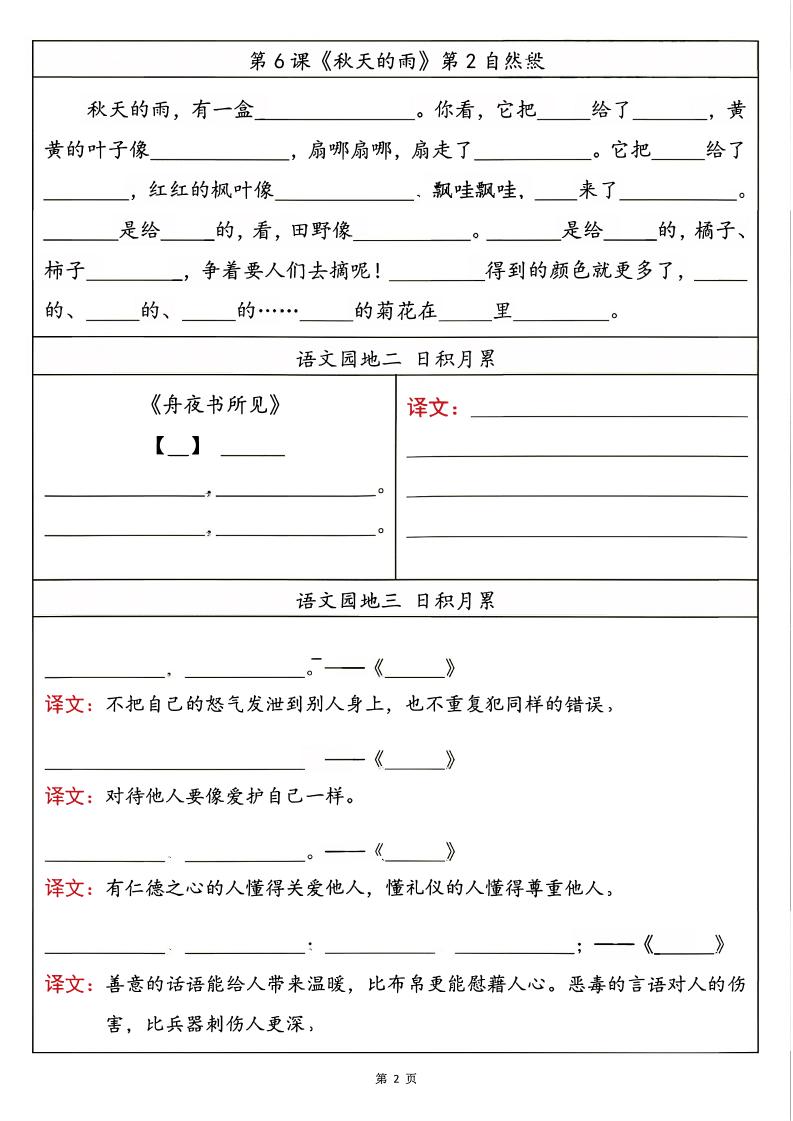 第6课《秋天的雨》第2自然段
秋天的雨，有一盒________。你看，它把____给了____，黄
黄的叶子像________，扇哪扇哪，扇走了________。它把____给了
____，红红的枫叶像________、飘哇飘哇，____来了________。
____是给____的，看，田野像________。____是给____的，橘子、
柿子____，争着要人们去摘呢！____得到的颜色就更多了，____
的、____的、____的……____的菊花在____里____。
语文园地二 日积月累
《舟夜书所见》
【__】 ____
________，________。
________，________。
译文：________
语文园地三 日积月累
________，________。——《____》
译文：不把自己的怒气发泄到别人身上，也不重复犯同样的错误。
________ ——《____》
译文：对待他人要像爱护自己一样。
________、________。——《____》
译文：有仁德之心的人懂得关爱他人，懂礼仪的人懂得尊重他人。
________、________：________ ________；——《____》
译文：善意的话语能给人带来温暖，比布帛更能慰藉人心。恶毒的言语对人的伤
害，比兵器刺伤人更深。
第 2 页